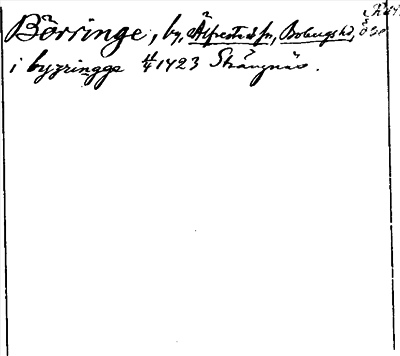 Börringe, by, Älfrestads sn, Bobergs hd,
i byrringge 4/4 1423 Strängnäs.